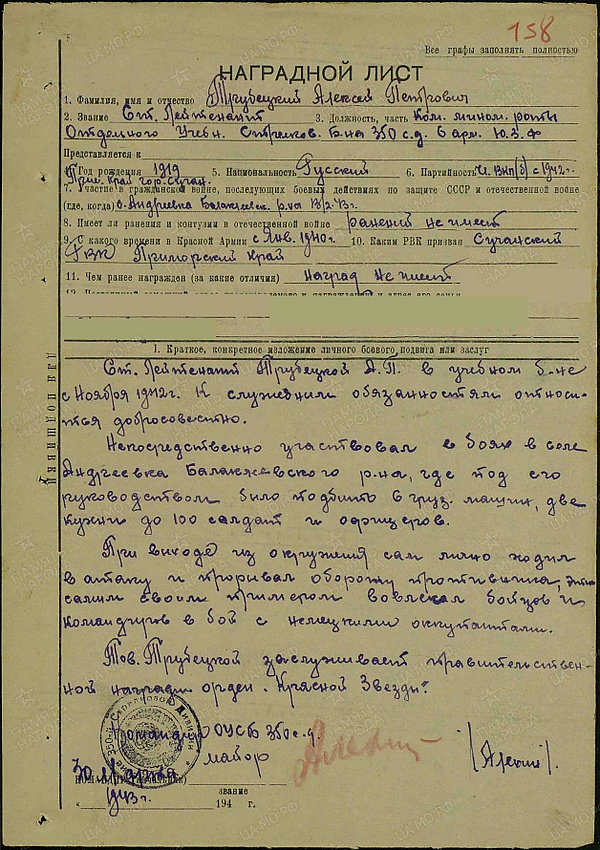 158
Все графы заполнять полностью
НАГРАДНОЙ ЛИСТ
1. Фамилия, имя и отчество Трубецкий Алексей Петрович
2. Звание Ст. Лейтенант 3. Должность, часть Ком. мином. роты
Отдельного Учебн. Стрелков. б-на 350 с.д. 6 арм. Ю.З.Ф
Представляется к
4. Год рождения 1919 5. Национальность Русский 6. Партийность Чл. ВКП(б) с 1942г.
Прим. край гор. Сучан.
7. Участие в гражданской войне, последующих боевых действиях по защите СССР и отечественной войне
(где, когда) с. Андреевка Балаклеевск. р-на 13/2-43г.
8. Имеет ли ранения и контузии в отечественной войне ранений не имеет
9. С какого времени в Красной Армии с Янв. 1940г. 10. Каким РВК призван Сучанский
РВК Приморский край
11. Чем ранее награжден (за какие отличия) наград не имеет
I. Краткое, конкретное изложение личного боевого подвига или заслуг
Ст. Лейтенант Трубецкой А.П. в учебном б-не
с Ноября 1942г. К служебним обязанностям относи-
ться добросовестно.
Непосредственно участвовал в боях в селе
Андреевка Балаклеевского р-на, где под его
руководством било подбито 6 груз. машин, две
кухни до 100 салдат и офицеров.
При виходе из окружения сам лично ходил
в атаку и проривал оборону противника, этим
самим своим примером вовлекал бойцов и
командиров в бой с немецкими оккупантами.
Тов. Трубецкой заслуживает правительствен-
ной награди орден „Красной Звезди“
Командир ОУСБ 350 с.д.
майор
30 Марта
1943г.
звание
194 г.